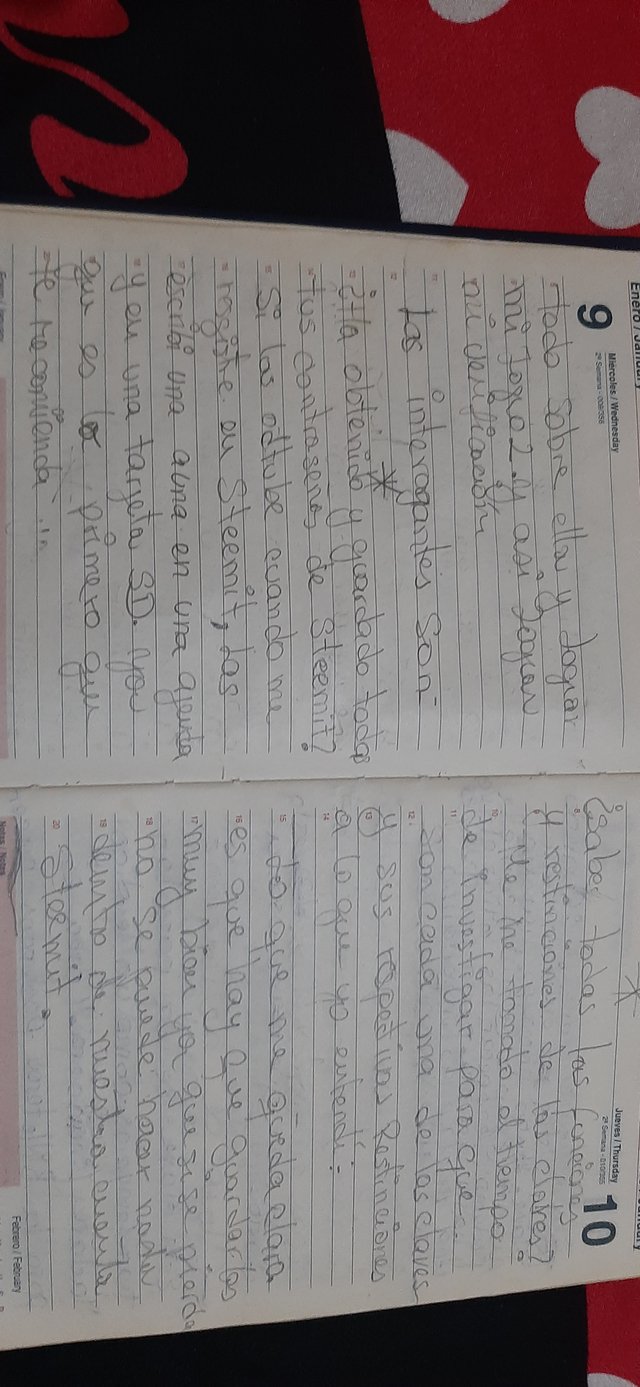 Enero / January
9
Miércoles / Wednesday
2ª Semana
todo sobre ella y logiar
mi logio 2. y asi logian
mi derificación
Las interogantes son
¿Ha obtenido y guardado todas
tus contraseñas de Steemit?
Si las odtube cuando me
registre en Steemit, las
escribi una auna en una ajenta
y en una targeta SD. you
que es lo primero que
te recomienda...
Jueves / Thursday
10
2ª Semana
¿Sabes todas las funciones
y restinciones de las claves?
Me he tomado el tiempo
de investigar para que
son cada una de las claves
y sus respetivas Restinciones
a lo que yo entendi.
Lo que me queda clara
es que hay que guardarlas
muy bien ya que si se pierda
no se puede hacer nada
deintro de nuestra cuenta
Steemit.
Notas / Notes
Febrero / February